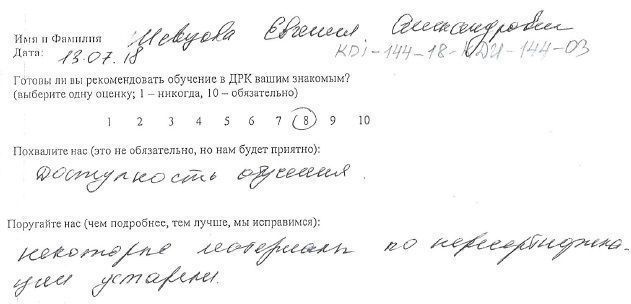 Имя и Фамилия Шевцова Евгения Александровна
Дата: 13.07.18 KDI-144-18-KDU-144-03
Готовы ли вы рекомендовать обучение в ДРК вашим знакомым?
(выберите одну оценку; 1 – никогда, 10 – обязательно)
1 2 3 4 5 6 7 8 9 10
Похвалите нас (это не обязательно, но нам будет приятно):
Доступность обучения.
Поругайте нас (чем подробнее, тем лучше, мы исправимся):
некоторые материалы по пересертифика-
ции устарели.